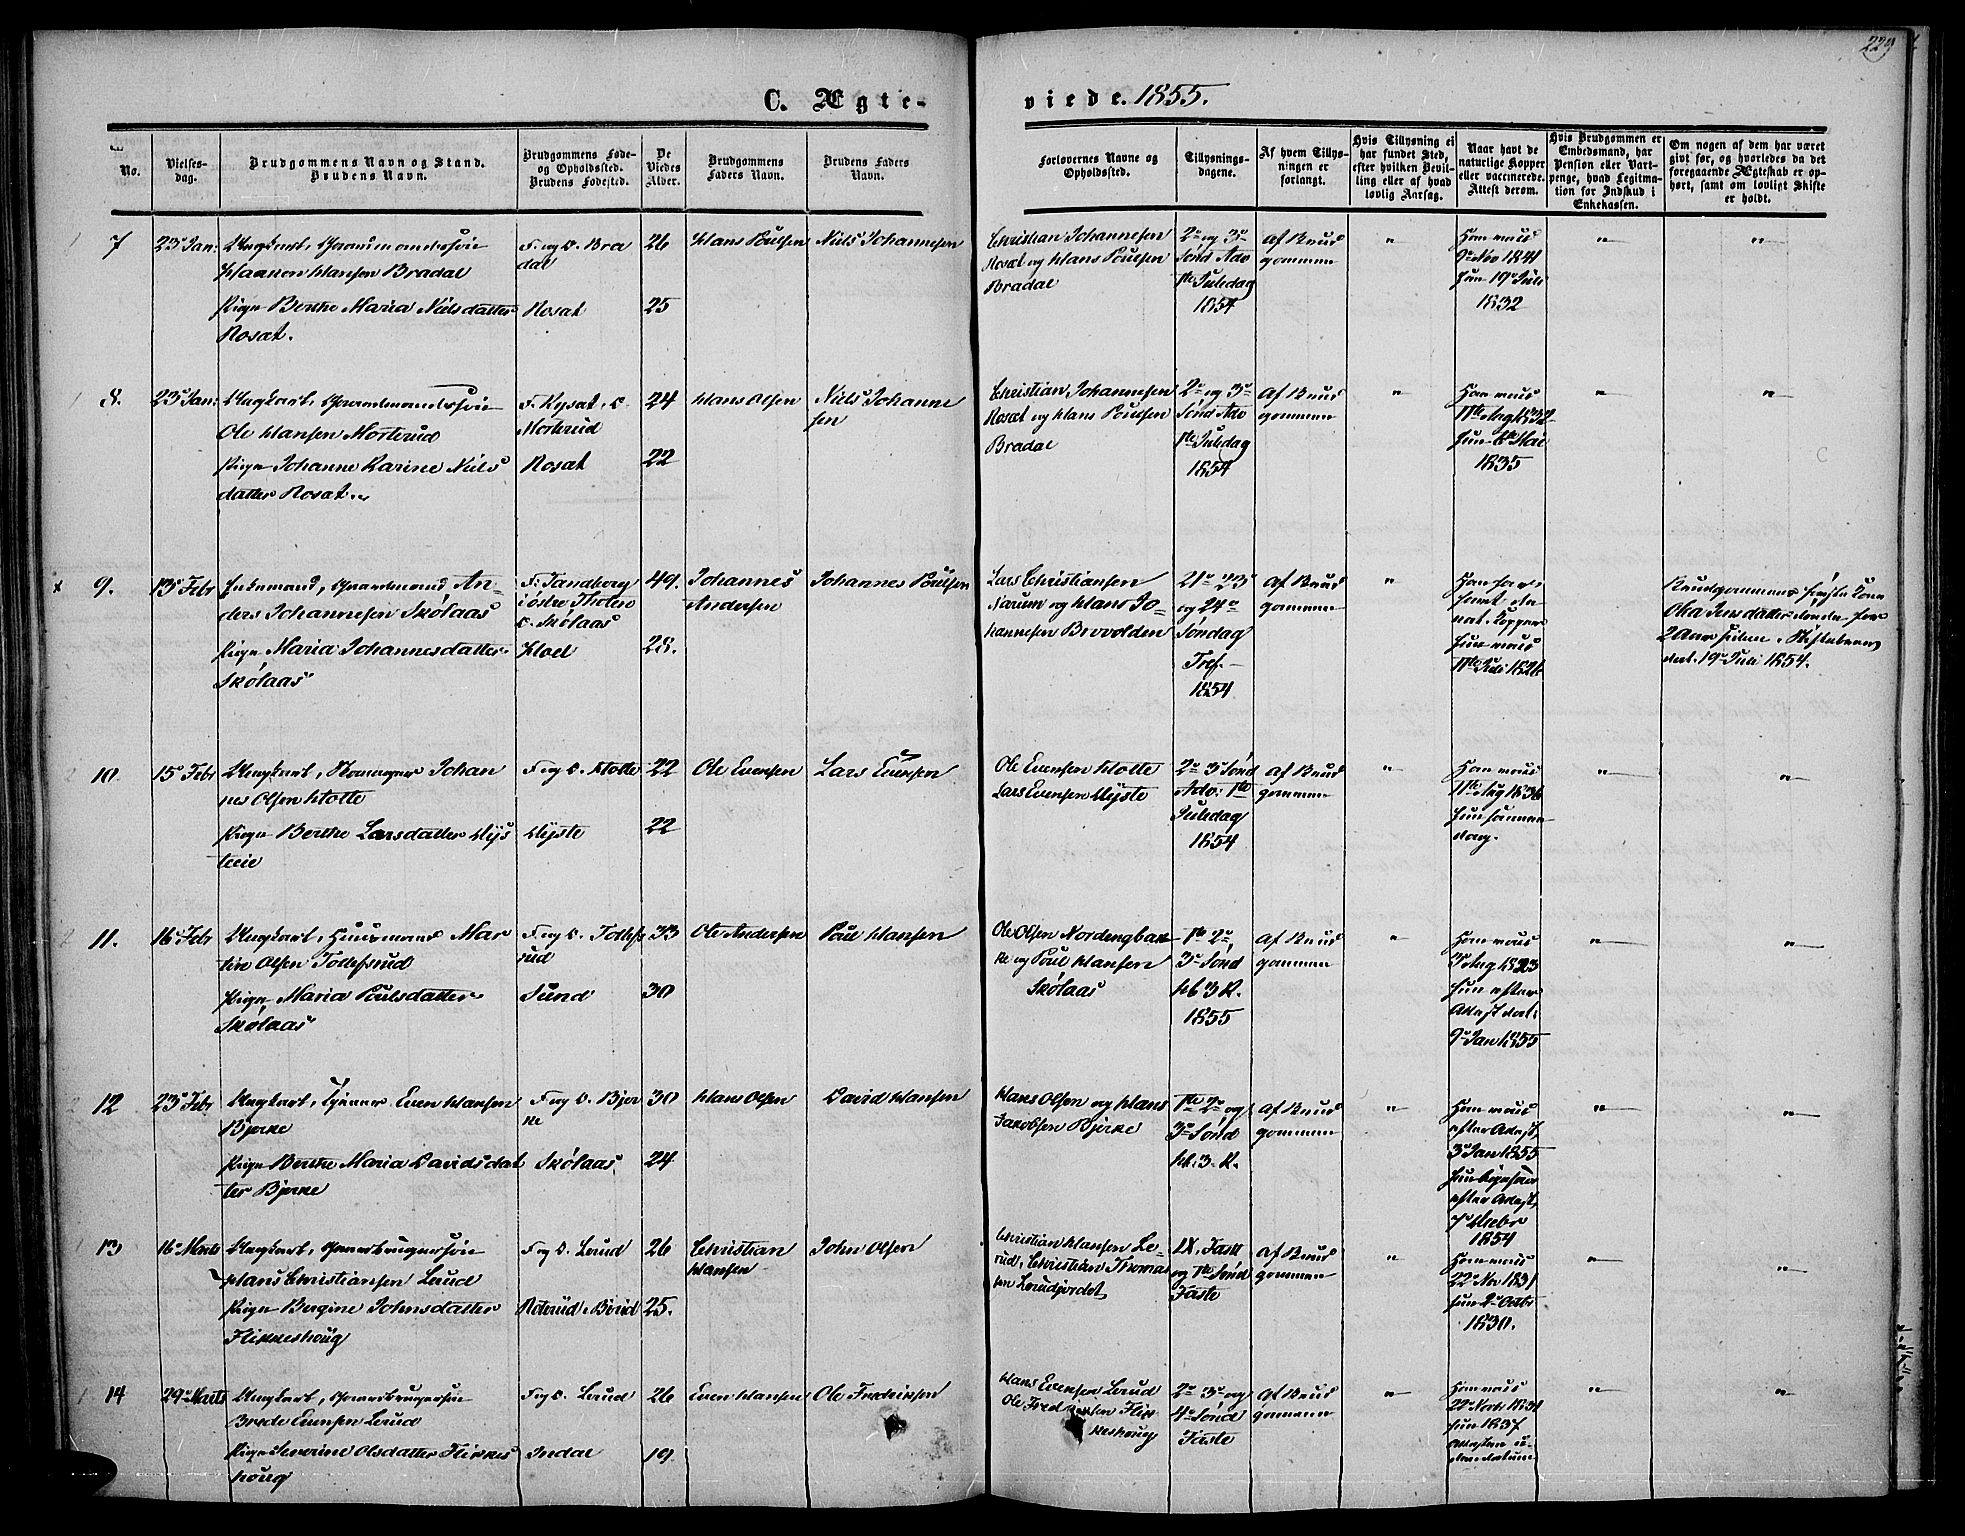 229
C. Ægte-
viede. 1855.
No.
Vielses-
dag.
Brudgommens Navn og Stand.
Brudens Navn.
Brudgommens Føde-
og Opholdssted.
Brudens Fødested.
De
Viedes
Alder.
Brudgommens
Faders Navn.
Brudens Faders
Navn.
Forlovernes Navne og
Opholdssted.
Tillysnings-
dagene.
Af hvem Tillys-
ningen er
forlangt.
Hvis Tillysning ei
har fundet Sted,
efter hvilken Bevil-
ling eller af hvad
lovlig Aarsag.
Naar havt de
naturlige Kopper
eller vaccinerede.
Attest derom.
Hvis Brudgommen er
Embedsmand, har
Pension eller Vart-
penge, hvad Legitima-
tion for Indskud i
Enkekassen.
Om nogen af dem har været
gift før, og hvorledes da det
foregaaende Ægteskab er op-
hørt, samt om lovligt Skifte
er holdt.
7 23 Jan: Ungkarl, Gaardmandssøn
Hansen Bradal
Pige Berthe Maria Nielsdatter
Rosat.
F. og O. Bra
dal
Rosat
26
25
Hans Poulsen
Niels Johannesen
Christian Johannesen
Rosat og Hans Poulsen
Bradal
2den og 3die
Sønd Adv
1ste Juledag
1854
af Brud
gommen
"
Ham vacc
9de Nov 1841
Hun 19de Juli
1832
"
"
8. 23 Jan: Ungkarl, Gaardmandssøn
Ole Hansen Morterud
Pige Johanne Karine Niels
datter Rosat.
F. Rysat, O.
Morterud
Rosat
24
22
Hans Olsen
Niels Johanne
sen
Christian Johannesen
Rosat og Hans Poulsen
Bradal
2den og 3die
Sønd Adv
1ste Juledag
1854
af Brud
gommen
"
Han vacc
11te Aug 1832
Hun 6te Mai
1835
"
"
9. 13 Febr Enkemand, Gaardmand, An-
ders Johannesen Skølaas
Pige Maria Johannesdatter
Skølaas
F: Tandberg
i østre Thoten
O. Skølaas
Kloel
49.
28.
Johannes
Andersen
Johannes Poulsen
Lars Christiansen
Narum og Hans Jo-
hannesen Brovolden
21de 23
og 24de
Søndag
Tref.
1854
af Brud
gommen
"
Han har
havt de
nat. Kopper
Hun vacc
11te Juli 1826
Brudgommens første Kone
Olia Jensdatter døde for
2 Aar siden. Skiftebrev
dat. 19de Juli 1854.
10. 15 Febr Ungkarl, Johan
nes Olsen Hotte
Pige Berthe Larsdatter Uys
teeie
F og O. Hotte
Uyste
22
22
Ole Evensen
Lars Evensen
Ole Evensen Hotte
Lars Evensen Uyste
2den 3 Sønd
Adv: 1ste
Juledag
1854
af Brud
gommen
"
Han vacc
11te Aug 1836
Hun samme
dag.
"
"
11. 16 Febr Ungkarl, Huusmand Mar
tin Olsen Tollefsrud
Pige Maria Poulsdatter
Skølaas
F og O. Tollefs
rud
Sund
33
30
Ole Andersen
Poul Hansen
Ole Olsen Nordengbak
ke og Poul Hansen
Skølaas
1ste 2den,
3die Sønd
H 3 K.
1855
af Brud
gommen
"
Han vacc
3die Aug 1823
Hun efter
Attest dat.
9de Jan 1855
"
"
12 23 Febr Ungkarl, Even Hansen
Bjerke
Pige Berthe Maria Davidsdat
ter Bjerke
F og O. Bjer
ke
Skølaas
30
24
Hans Olsen
David Hansen
Hans Olsen og Hans
Jakobsen Bjerke
1ste 2den og
3die Sønd
H. 3. K.
af Brud
gommen
"
Han vacc
efter Attest
3 Jan 1855
Hun ligesaa
efter Attest
7de Decbr
1854
"
"
13 16 Marts Ungkarl, Gaardbrugersøn
Hans Christiansen Lerud
Pige Bergine Johnsdatter
Flikkeshoug
F og O. Lerud
Roterud Børud
26
25.
Christian
Hansen
John Olsen
Christian Hansen Le-
rud, Christian Thomas
sen Lerudjordet
LX. Fast
og 1ste Sønd
Faste
af Brud
gommen
"
Han vacc
22de Nov 1831
Hun 2den Octbr
1830.
"
14 29 Marts Ungkarl, Gaardbrugersøn
Brede Evensen Lerud
Pige Severine Olsdatter Flikkes
houg
F og O. Lerud
Indal
26
19.
Even Hansen
Ole Fredriksen
Hans Evensen Lerud
Ole Fredriksen Flik
keshoug
2den 3die og
4de Sønd
Faste
af Brud
gommen
"
Han vacc
22de Novbr 1831
Hun 1837
Attesten u-
den Datum
"
"